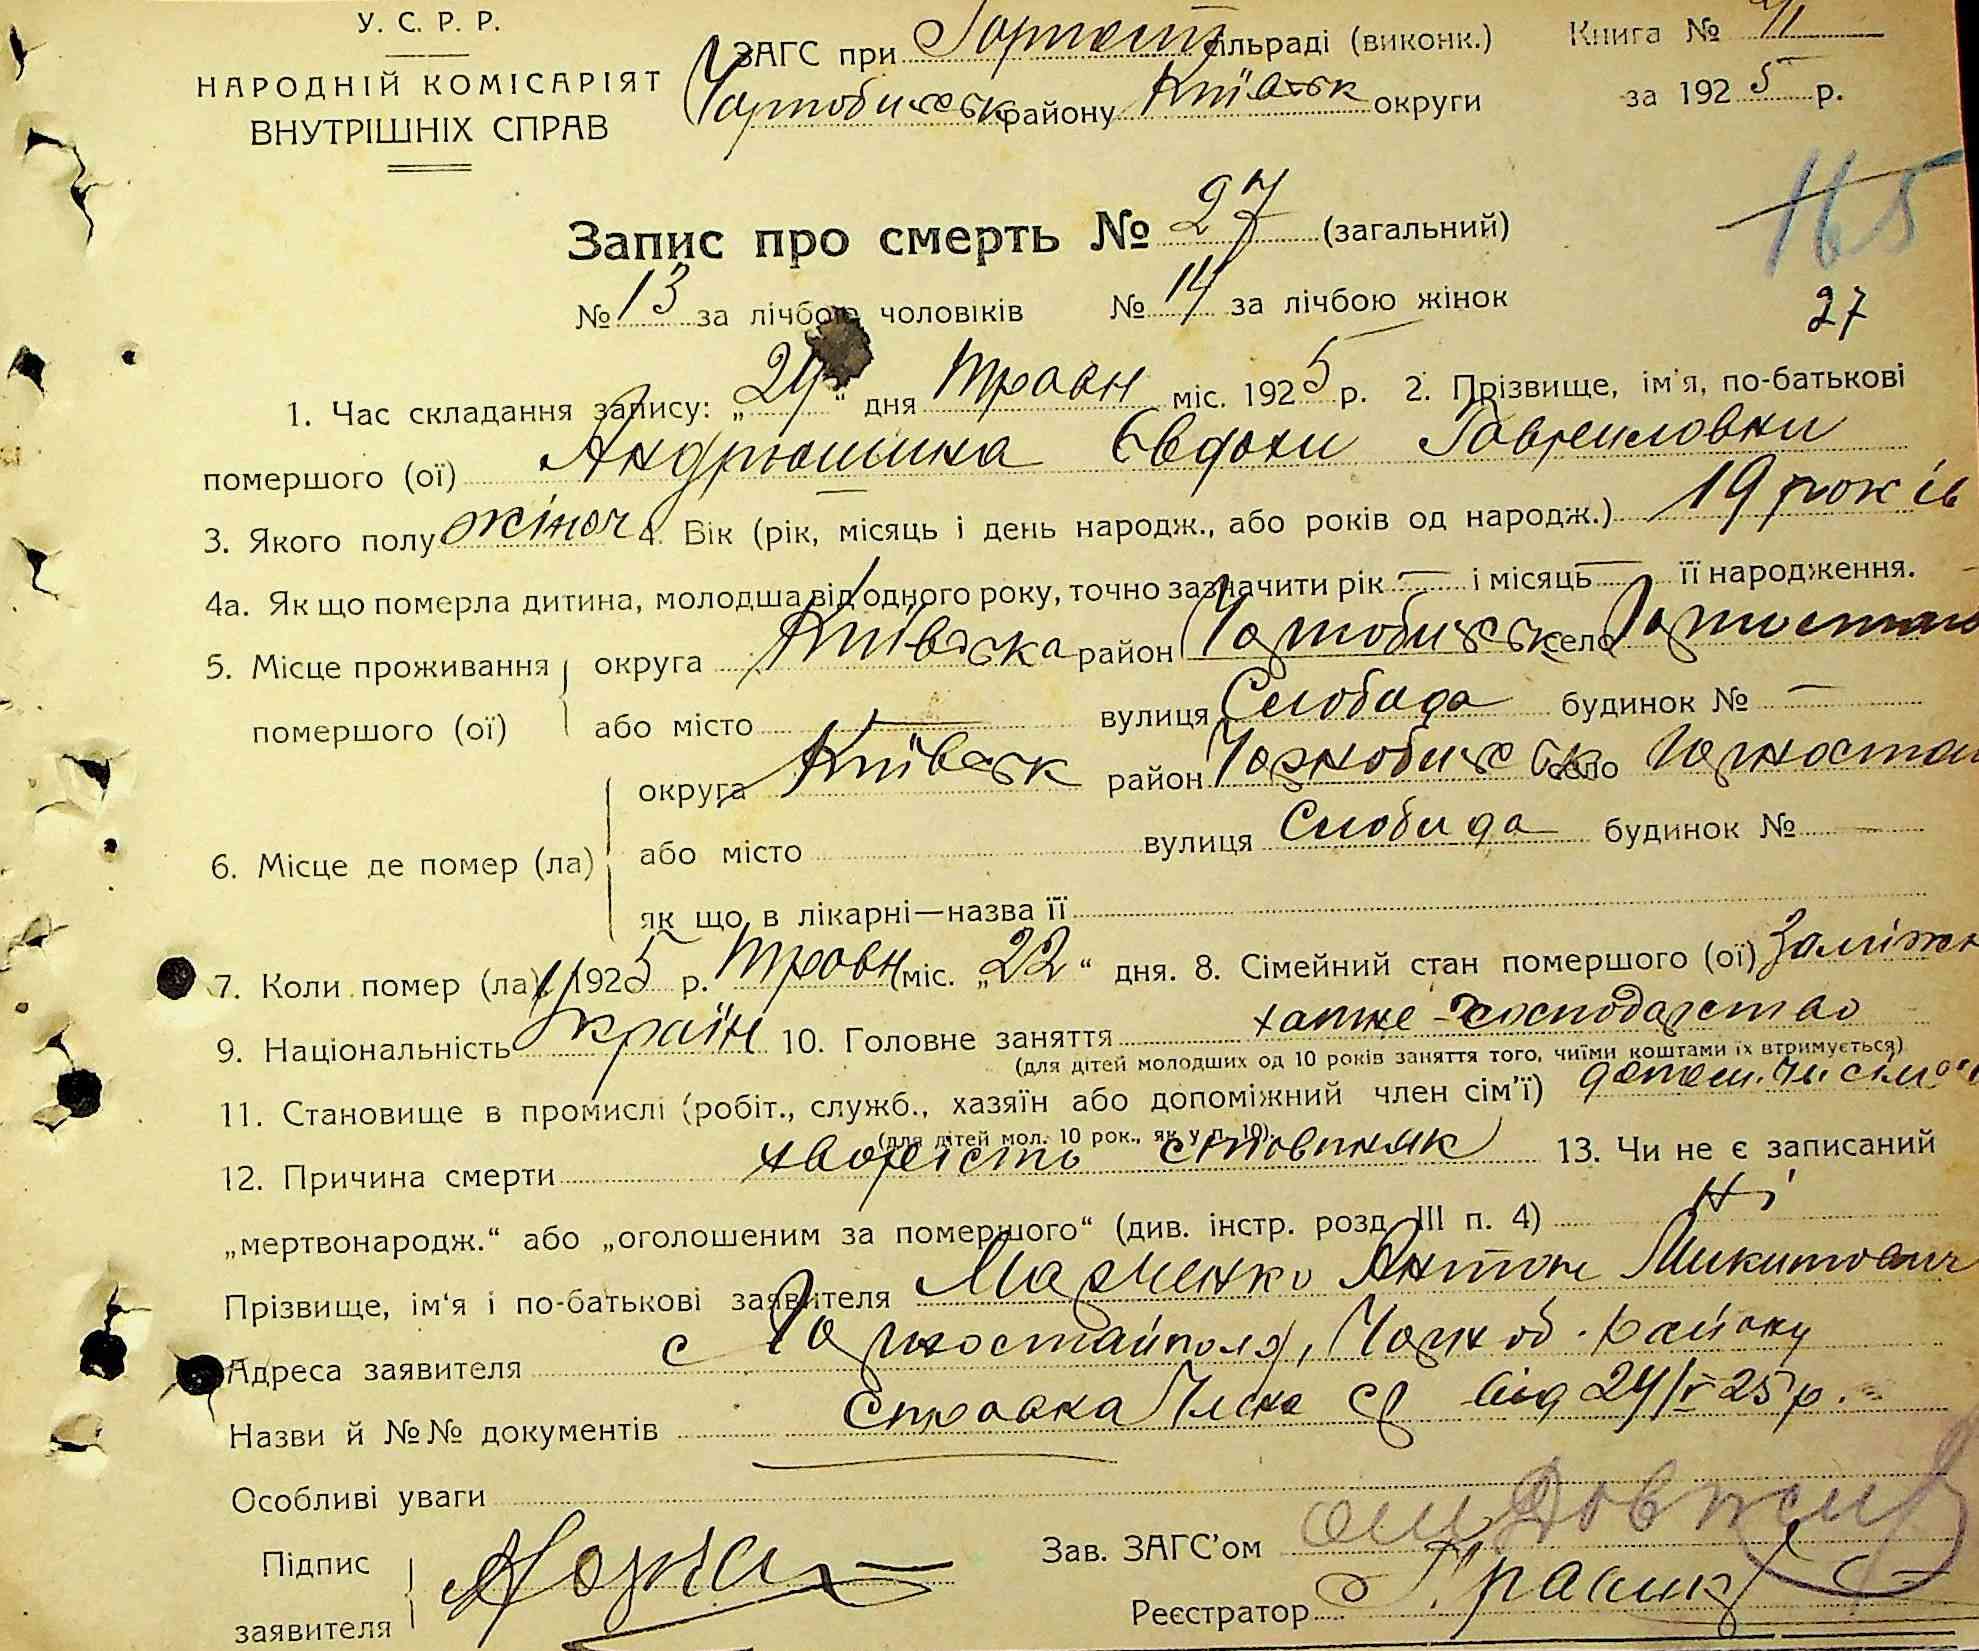 У. С. Р. Р.
НАРОДНІЙ КОМІСАРІЯТ
ВНУТРІШНІХ СПРАВ
ЗАГС при Горност сільраді (виконк.) Книга №
Чорнобильськ району Київськ округи за 1925 р.
165
Запис про смерть № 27 (загальний)
№ 13 за лічбою чоловіків № 14 за лічбою жінок
27
1. Час складання запису: „24“ дня Травн міс. 1925 р. 2. Прізвище, ім'я, по-батькові
помершого (ої) Андрюшина Євдохи Гавриловни
3. Якого полу жіноч 4. Вік (рік, місяць і день народж., або років од народж.) 19 років
4а. Як що померла дитина, молодша від одного року, точно зазначити рік — і місяць — її народження.
5. Місце проживання округа Київська район Чорнобильськ село Горностай
помершого (ої) або місто — вулиця Слобода будинок № —
6. Місце де помер (ла) округа Київськ район Чорнобильськ село Горностай
або місто вулиця Слобода будинок № —
як що в лікарні—назва її
7. Коли помер (ла) 1925 р. Травн міс. „22“ дня. 8. Сімейний стан помершого (ої) Заміжн
9. Національність Україн 10. Головне заняття хатнє-господарство
(для дітей молодших од 10 років заняття того, чиїми коштами їх втримується)
11. Становище в промислі (робіт., служб., хазяїн або допоміжний член сім'ї) допом. чл сім'ї
(для дітей мол. 10 рок., як у п. 10)
12. Причина смерти хворість 13. Чи не є записаний
„мертвонародж.“ або „оголошеним за помершого“ (див. інстр. розд III п. 4) Ні
Прізвище, ім'я і по-батькові заявителя Марченко Антон Микитович
Адреса заявителя с Горностайполя, Чорноб. району
Назви й №№ документів Справка від 24/V 25 р.
Особливі уваги
Підпис заявителя
Зав. ЗАГС'ом
Реєстратор